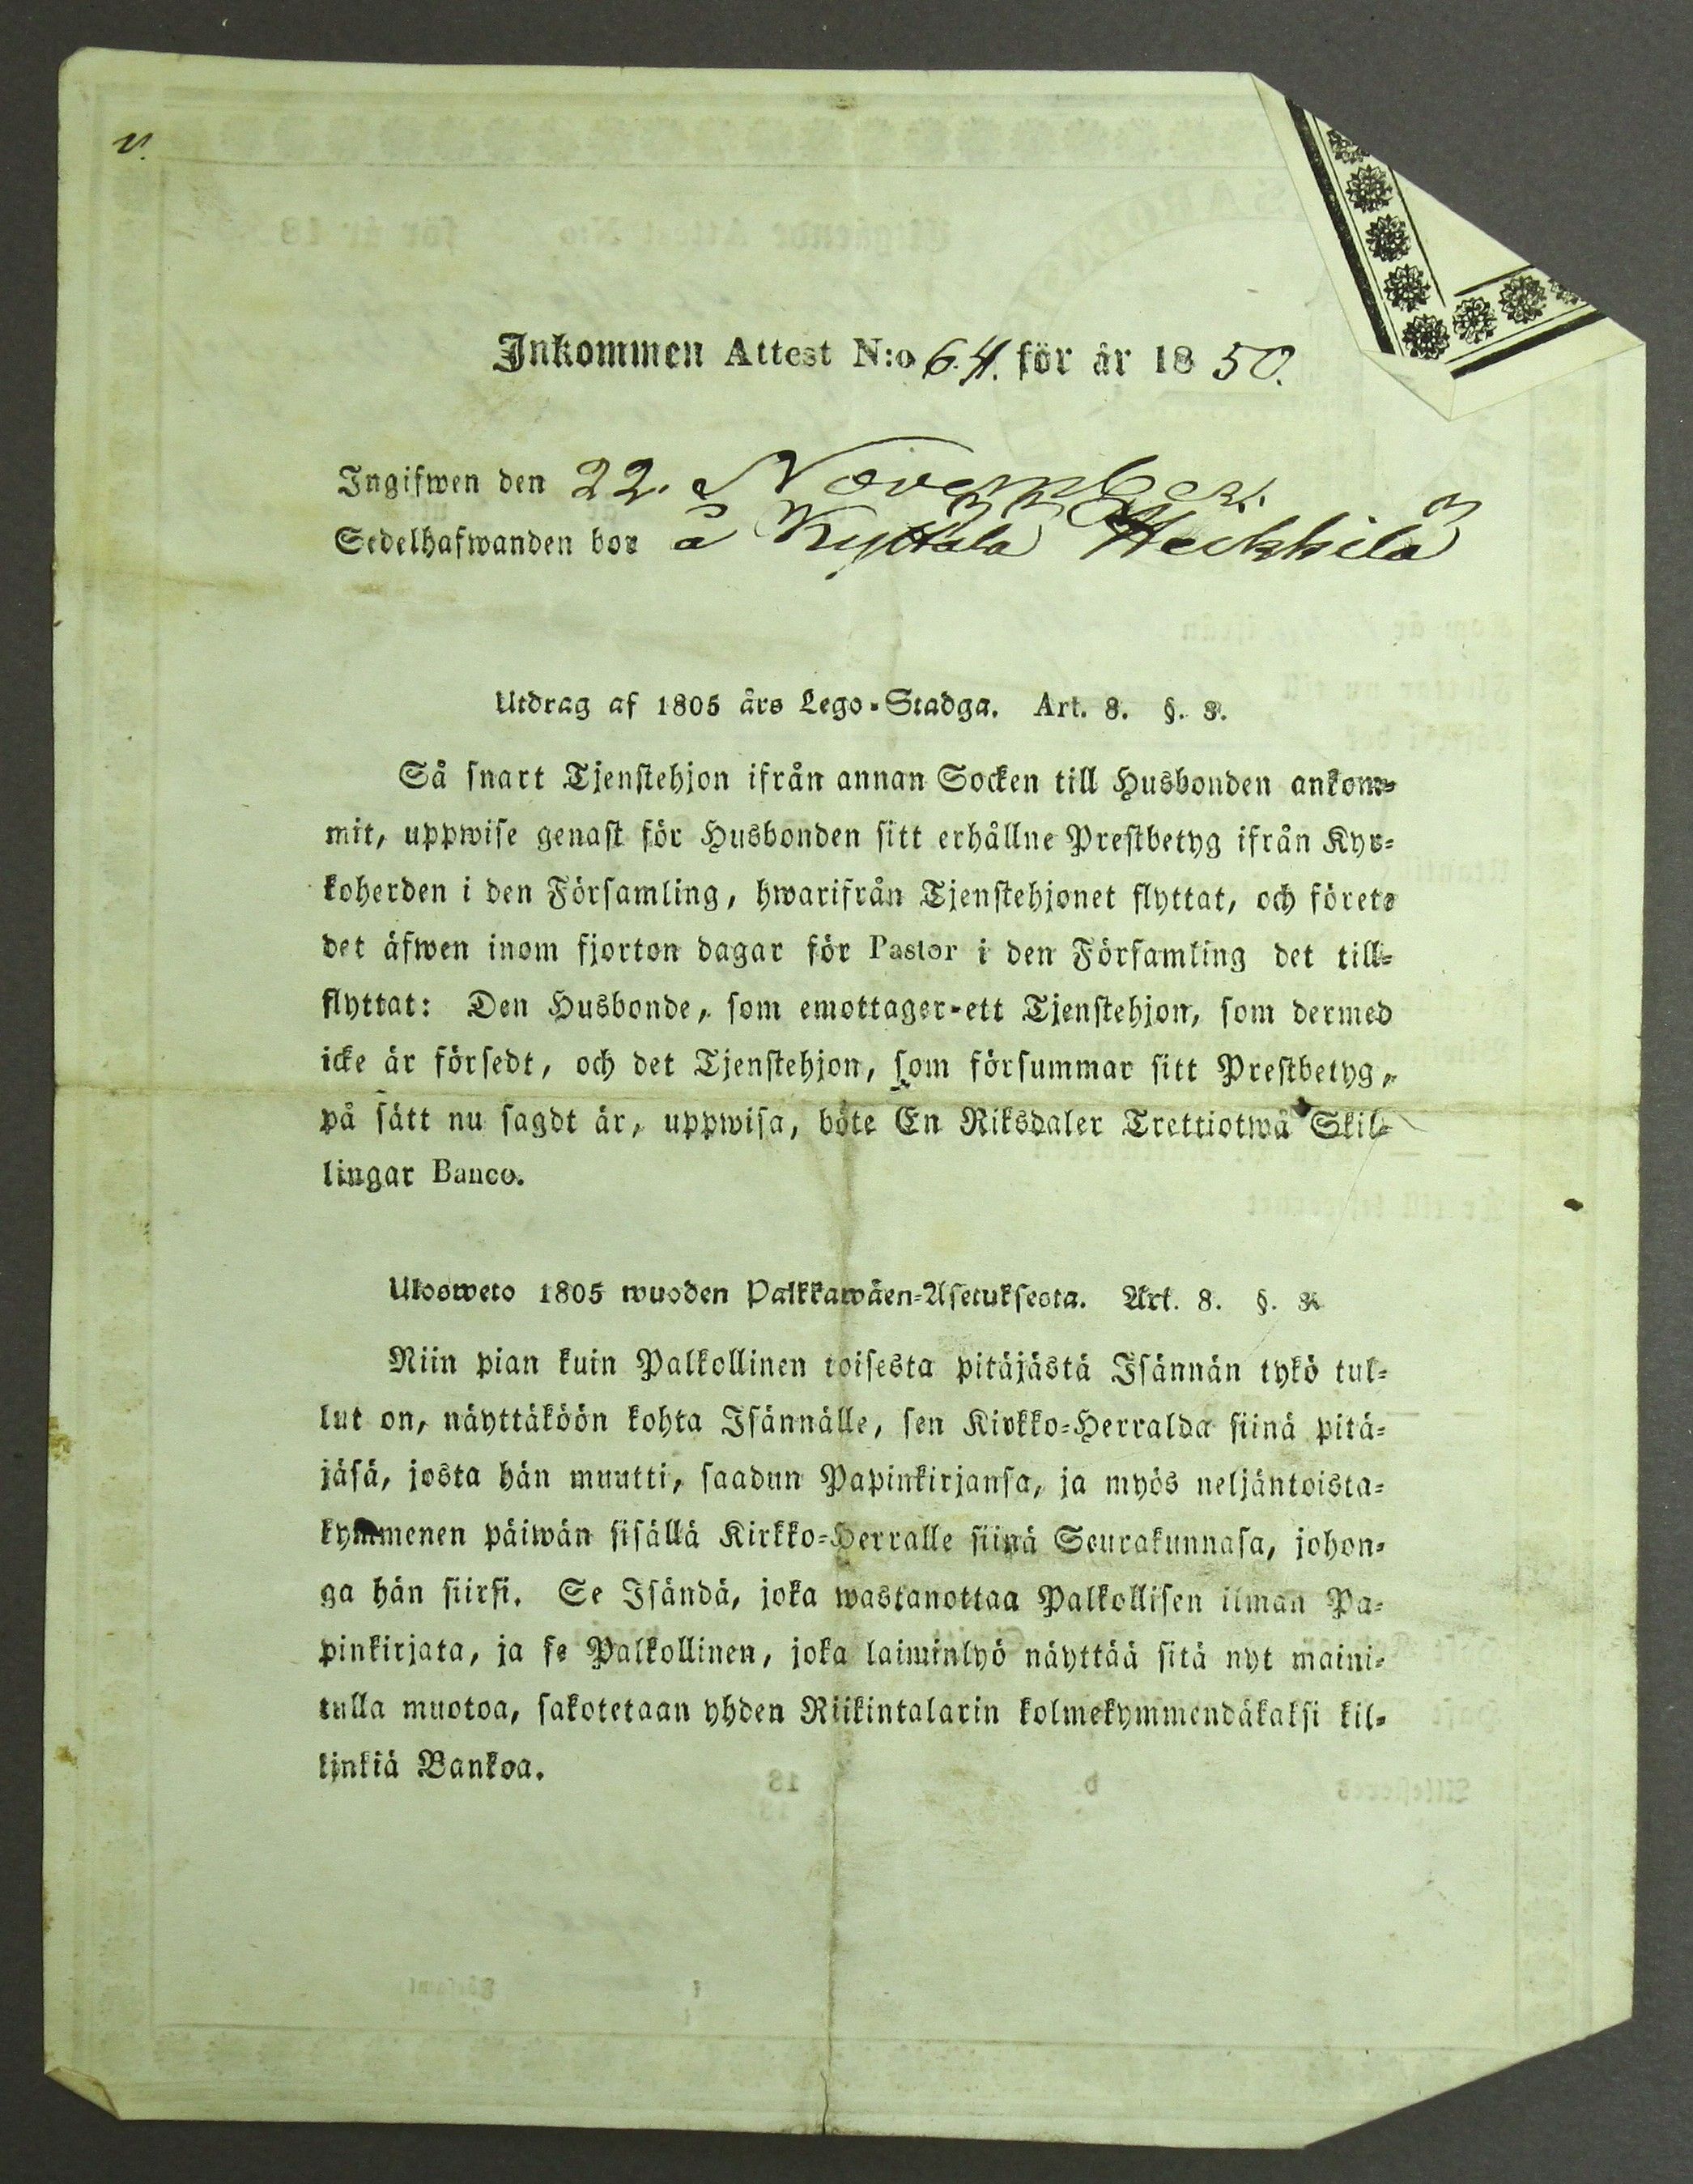 v.
Inkommen Attest N:o 64. för år 1850.
Ingifwen den 22. November.
Sedelhafwanden bor å Kyttälä Heikkilä
Utdrag af 1805 års Lego-Stadga. Art. 8. §. 3.
Så snart Tjenstehjon ifrån annan Socken till Husbonden ankom-
mit, uppwise genast för Husbonden sitt erhållne Prestbetyg ifrån Kyr-
koherden i den Församling, hwarifrån Tjenstehjonet flyttat, och förete
det äfwen inom fjorton dagar för Pastor i den Församling det till-
flyttat: Den Husbonde, som emottager ett Tjenstehjon, som dermed
icke är försedt, och det Tjenstehjon, som försummar sitt Prestbetyg,
på sätt nu sagdt är, uppwisa, böte En Riksdaler Trettiotwå Skil-
lingar Banco.
Ulosweto 1805 wuoden Palkkawäen-Asetuksesta. Art. 8. §. 3.
Niin pian kuin Palkollinen toisesta pitäjästä Isännän tykö tul-
lut on, näyttäköön kohta Isännälle, sen Kirkko-Herralda siinä pitä-
jäsä, josta hän muutti, saadun Papinkirjansa, ja myös neljäntoista-
kymmenen päiwän sisällä Kirkko-Herralle siinä Seurakunnasa, johon-
ga hän siirsi. Se Isändä, joka wastanottaa Palkollisen ilman Pa-
pinkirjata, ja se Palkollinen, joka laiminlyö näyttää sitä nyt maini-
tulla muotoa, sakotetaan yhden Riikintalarin kolmekymmendäkaksi kil-
linkiä Bankoa.